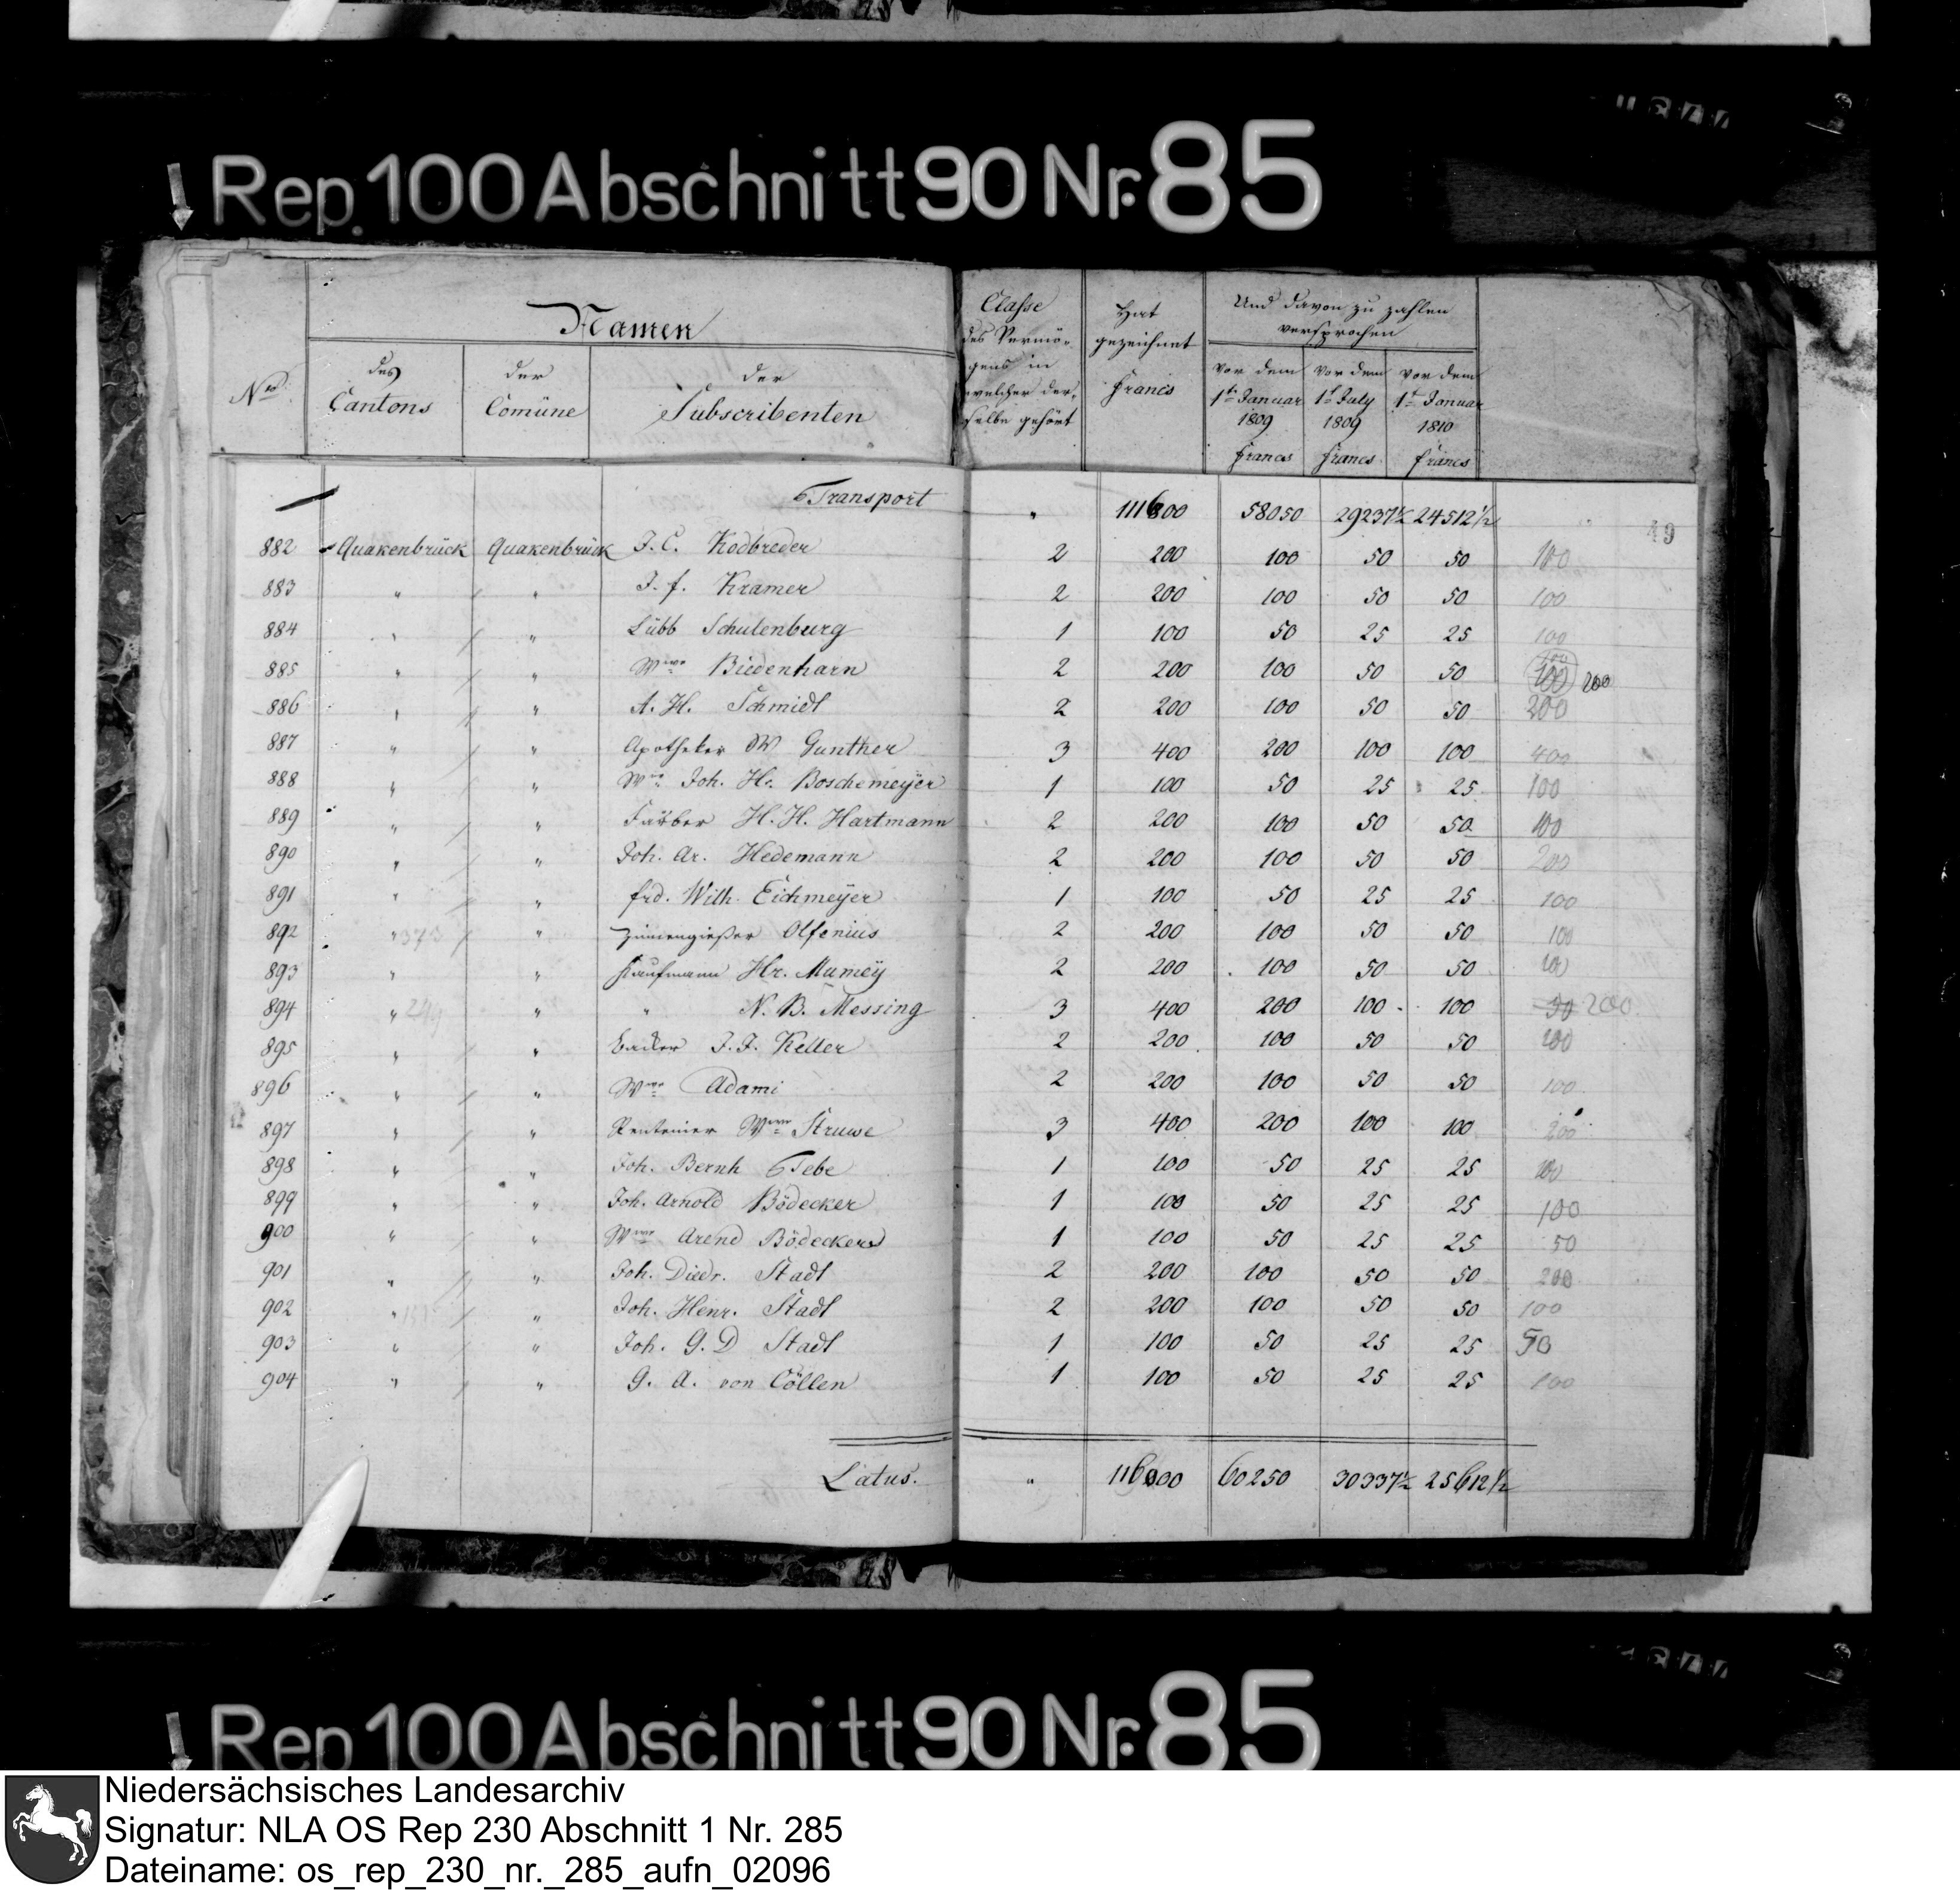 Rep. 100 Abschnitt 90 Nr. 85
Namen
Nro. des Cantons der Comüne der Subscribenten
Classe des Vermögens in welcher derselbe gehört
Hat gezeichnet Francs
Und davon zu zahlen versprochen
vor dem 1ten Januar 1809 Francs
vor dem 1t July 1809 Francs
vor dem 1t Januar 1810 Francs
49
Transport " 111600 58050 29237½ 24512½
882 Quakenbrück Quakenbrück J. C. Kodbreder 2 200 100 50 50 100
883 " " J. f. Kramer 2 200 100 50 50 100
884 " " Lübb Schulenburg 1 100 50 25 25 100
885 " " Wwe Biedenharn 2 200 100 50 50 100 200
886 " " A. H. Schmidt 2 200 100 50 50 200
887 " " Apotheker W Gunther 3 400 200 100 100 400
888 " " Wwe Joh. Hr. Boschemeÿer 1 100 50 25 25 100
889 " " Färber H. H. Hartmann 2 200 100 50 50 100
890 " " Joh. Ar. Hedemann 2 200 100 50 50 200
891 " " frd. Wilh. Eichmeÿer 1 100 50 25 25 100
892 " 373 " Zinnengießer Olfenius 2 200 100 50 50 100
893 " " Kaufmann Hr. Mumeÿ 2 200 100 50 50
894 " " " N. B. Messing 3 400 200 100 100 50 200
895 " " Becker J. F. Keller 2 200 100 50 50 200
896 " " Wwe Adami 2 200 100 50 50 100
897 " " Rentenier Wwe Struwe 3 400 200 100 100 200
898 " " Joh. Bernh Tebe 1 100 50 25 25
899 " " Joh. Arnold Bödecker 1 100 50 25 25 100
900 " " Wwe Arend Bödeckers 1 100 50 25 25 50
901 " " Joh. Diedr. Stadt 2 200 100 50 50 200
902 " " Joh. Henr. Stadt 2 200 100 50 50 100
903 " " Joh. G. D Stadt 1 100 50 25 25 50
904 " " G. A. von Cöllen 1 100 50 25 25 100
Latus. " 116000 60250 30337½ 25612½
Rep 100 Abschnitt 90 Nr. 85
Niedersächsisches Landesarchiv
Signatur: NLA OS Rep 230 Abschnitt 1 Nr. 285
Dateiname: os_rep_230_nr._285_aufn_02096